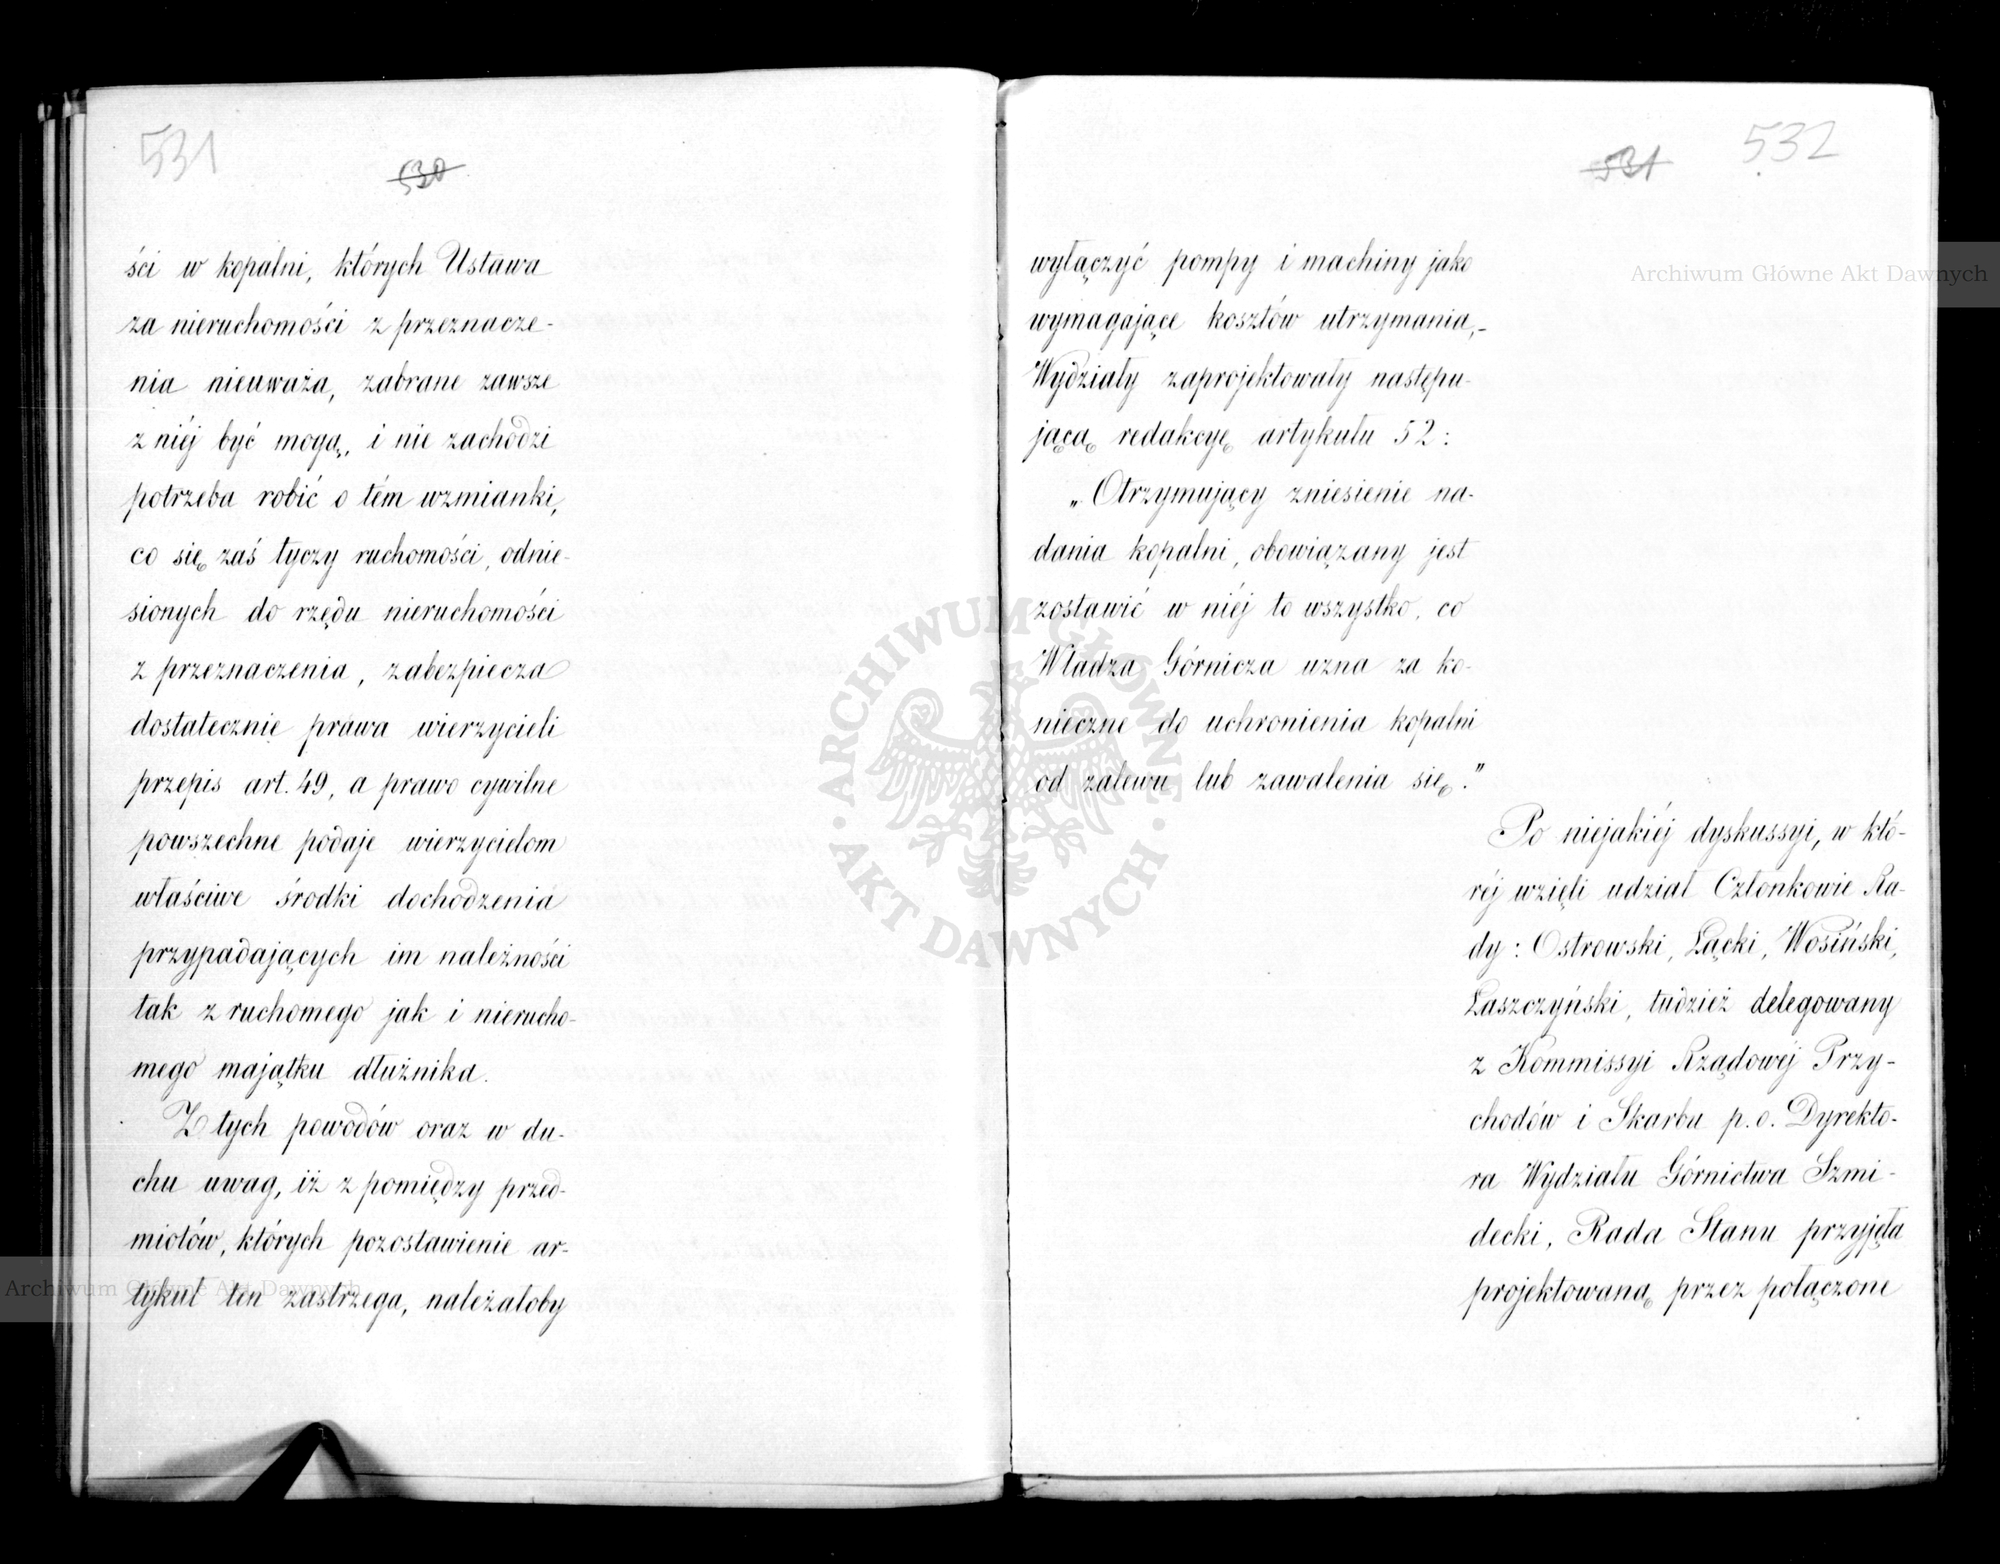 531
530
ści w kopalni, których Ustawa
za nieruchomości z przeznacze-
nia nieuważa, zabrane zawsze
z niéj być mogą, i nie zachodzi
potrzeba robić o tém wzmianki,
co się zaś tyczy ruchomości, odnie-
sionych do rzędu nieruchomości
z przeznaczenia, zabezpiecza
dostatecznie prawa wierzycieli
przepis art. 49, a prawo cywilne
powszechne podaje wierzycielom
właściwe środki dochodzenia
przypadających im należności
tak z ruchomego jak i nierucho-
mego majątku dłużnika.
Z tych powodów oraz w du-
chu uwag, iż z pomiędzy przed-
miotów, których pozostawienie ar-
tykuł ten zastrzega, należałoby
531
532
wyłączyć pompy i machiny jako
wymagające kosztów utrzymania,-
Wydziały zaprojektowały następu-
jącą redakcyę artykułu 52:
„Otrzymujący zniesienie na-
dania kopalni, obowiązany jest
zostawić w niéj to wszystko, co
Władza Górnicza uzna za ko-
nieczne do uchronienia kopalni
od zalewu lub zawalenia się."
Po niejakiéj dyskussyi, w któ-
réj wzięli udział Członkowie Ra-
dy: Ostrowski, Łącki, Wosiński,
Łaszczyński, tudzież delegowany
z Kommissyi Rządowéj Przy-
chodów i Skarbu p. o. Dyrekto-
ra Wydziału Górnictwa Szmi-
decki, Rada Stanu przyjęła
projektowaną przez połączone
Archiwum Główne Akt Dawnych
Archiwum Główne Akt Dawnych
ARCHIWUM GŁÓWNE
AKT DAWNYCH